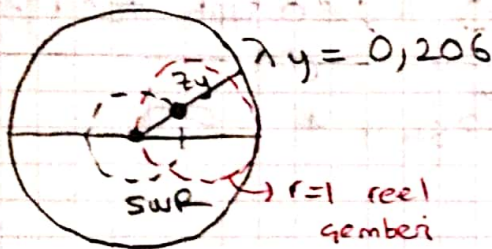 λy = 0,206
zy
SWR
r=1 reel
çemberi